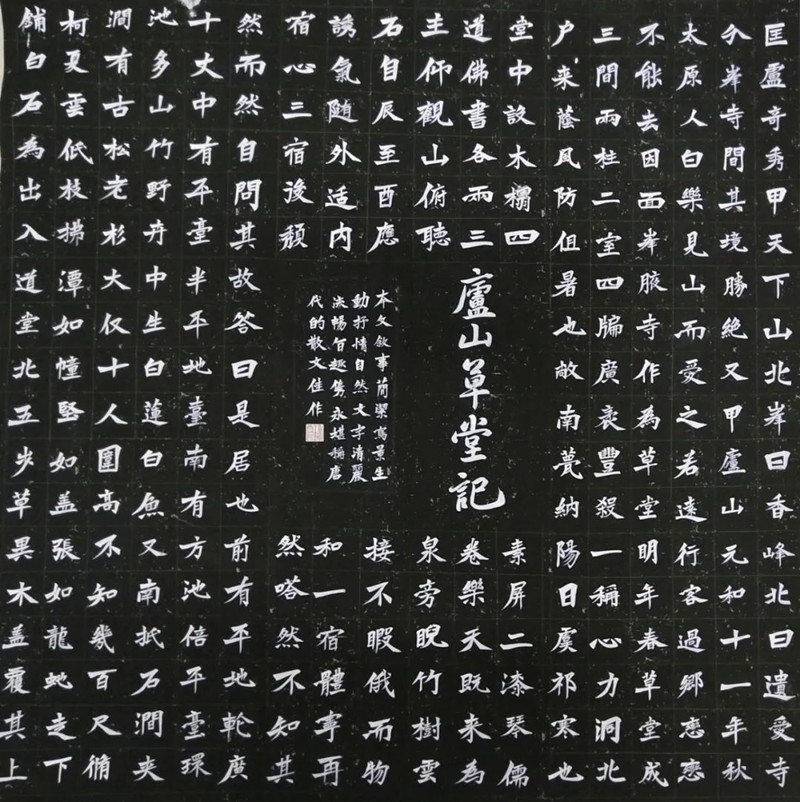 匡廬奇秀甲天下山北峯曰香峰北曰遺愛寺
介峯寺間其境勝絕又甲廬山元和十一年秋
太原人白樂見山而愛之若遠行客過鄉戀戀
不能去因面峯腋寺作為草堂明年春草堂成
三間兩柱二室四牖廣袤豐殺一稱心力洞北
户来蔭風防伹暑也敞南甍納陽日虞祁寒也
堂中設木榻四素屏二漆琴儒
道佛書各兩三卷樂天既来為
主仰觀山俯聽泉旁睨竹樹雲
石自辰至酉應接不暇俄而物
誘氣随外适内和一宿體寧再
宿心三宿後頹然嗒然不知其
然而然自問其故答曰是居也前有平地輪廣
十丈中有平臺半平地臺南有方池倍平臺環
池多山竹野卉中生白蓮白魚又南抵石澗夾
澗有古松老杉大仅十人圍高不知幾百尺脩
柯戛雲低枝拂潭如幢竪如盖張如龍虵走下
鋪白石為出入道堂北五步草異木盖覆其上
廬山草堂記
本文敘事簡潔寫景生
動抒情自然文字清麗
流暢旨趣雋永堪稱唐
代的散文佳作